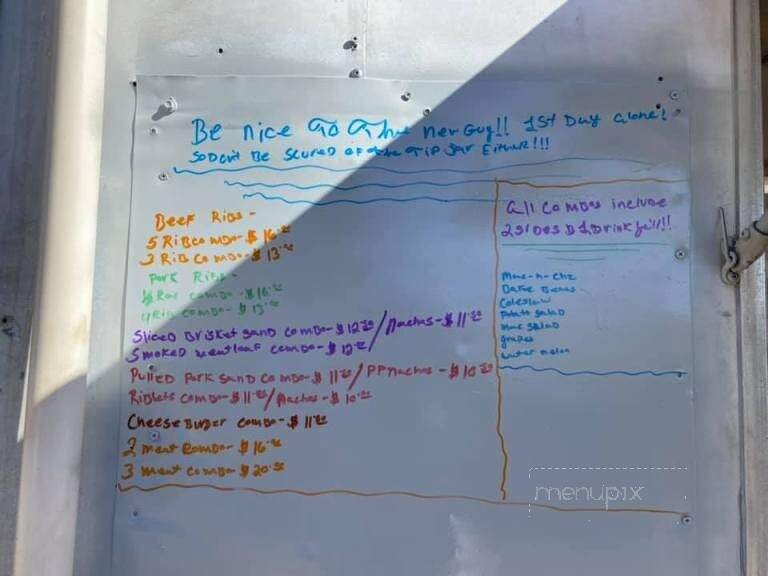 Be nice to the new Guy!! 1st Day alone!
SO Don't Be Scared of the TIP Jar Either!!!
Beef Ribs -
5 Rib combo - $16.00
3 Rib combo - $13.00
Pork Ribs -
combo - $16.00
4 Rib combo - $13.00
Sliced Brisket Sand combo - $12.00 / Nachos - $11.00
Smoked meatloaf combo - $12.00
Pulled Pork Sand combo - $11.00 / PP Nachos - $10.00
Riblets combo - $11.00 / Nachos - $10.00
Cheese Burger combo - $11.00
2 meat combo - $16.00
3 meat combo - $20.00
All combos include
2 sides & 1 Drink
Mac-n-Chz
Bake Beans
Coleslaw
Potato Salad
Mac Salad
grapes
water melon
menupix